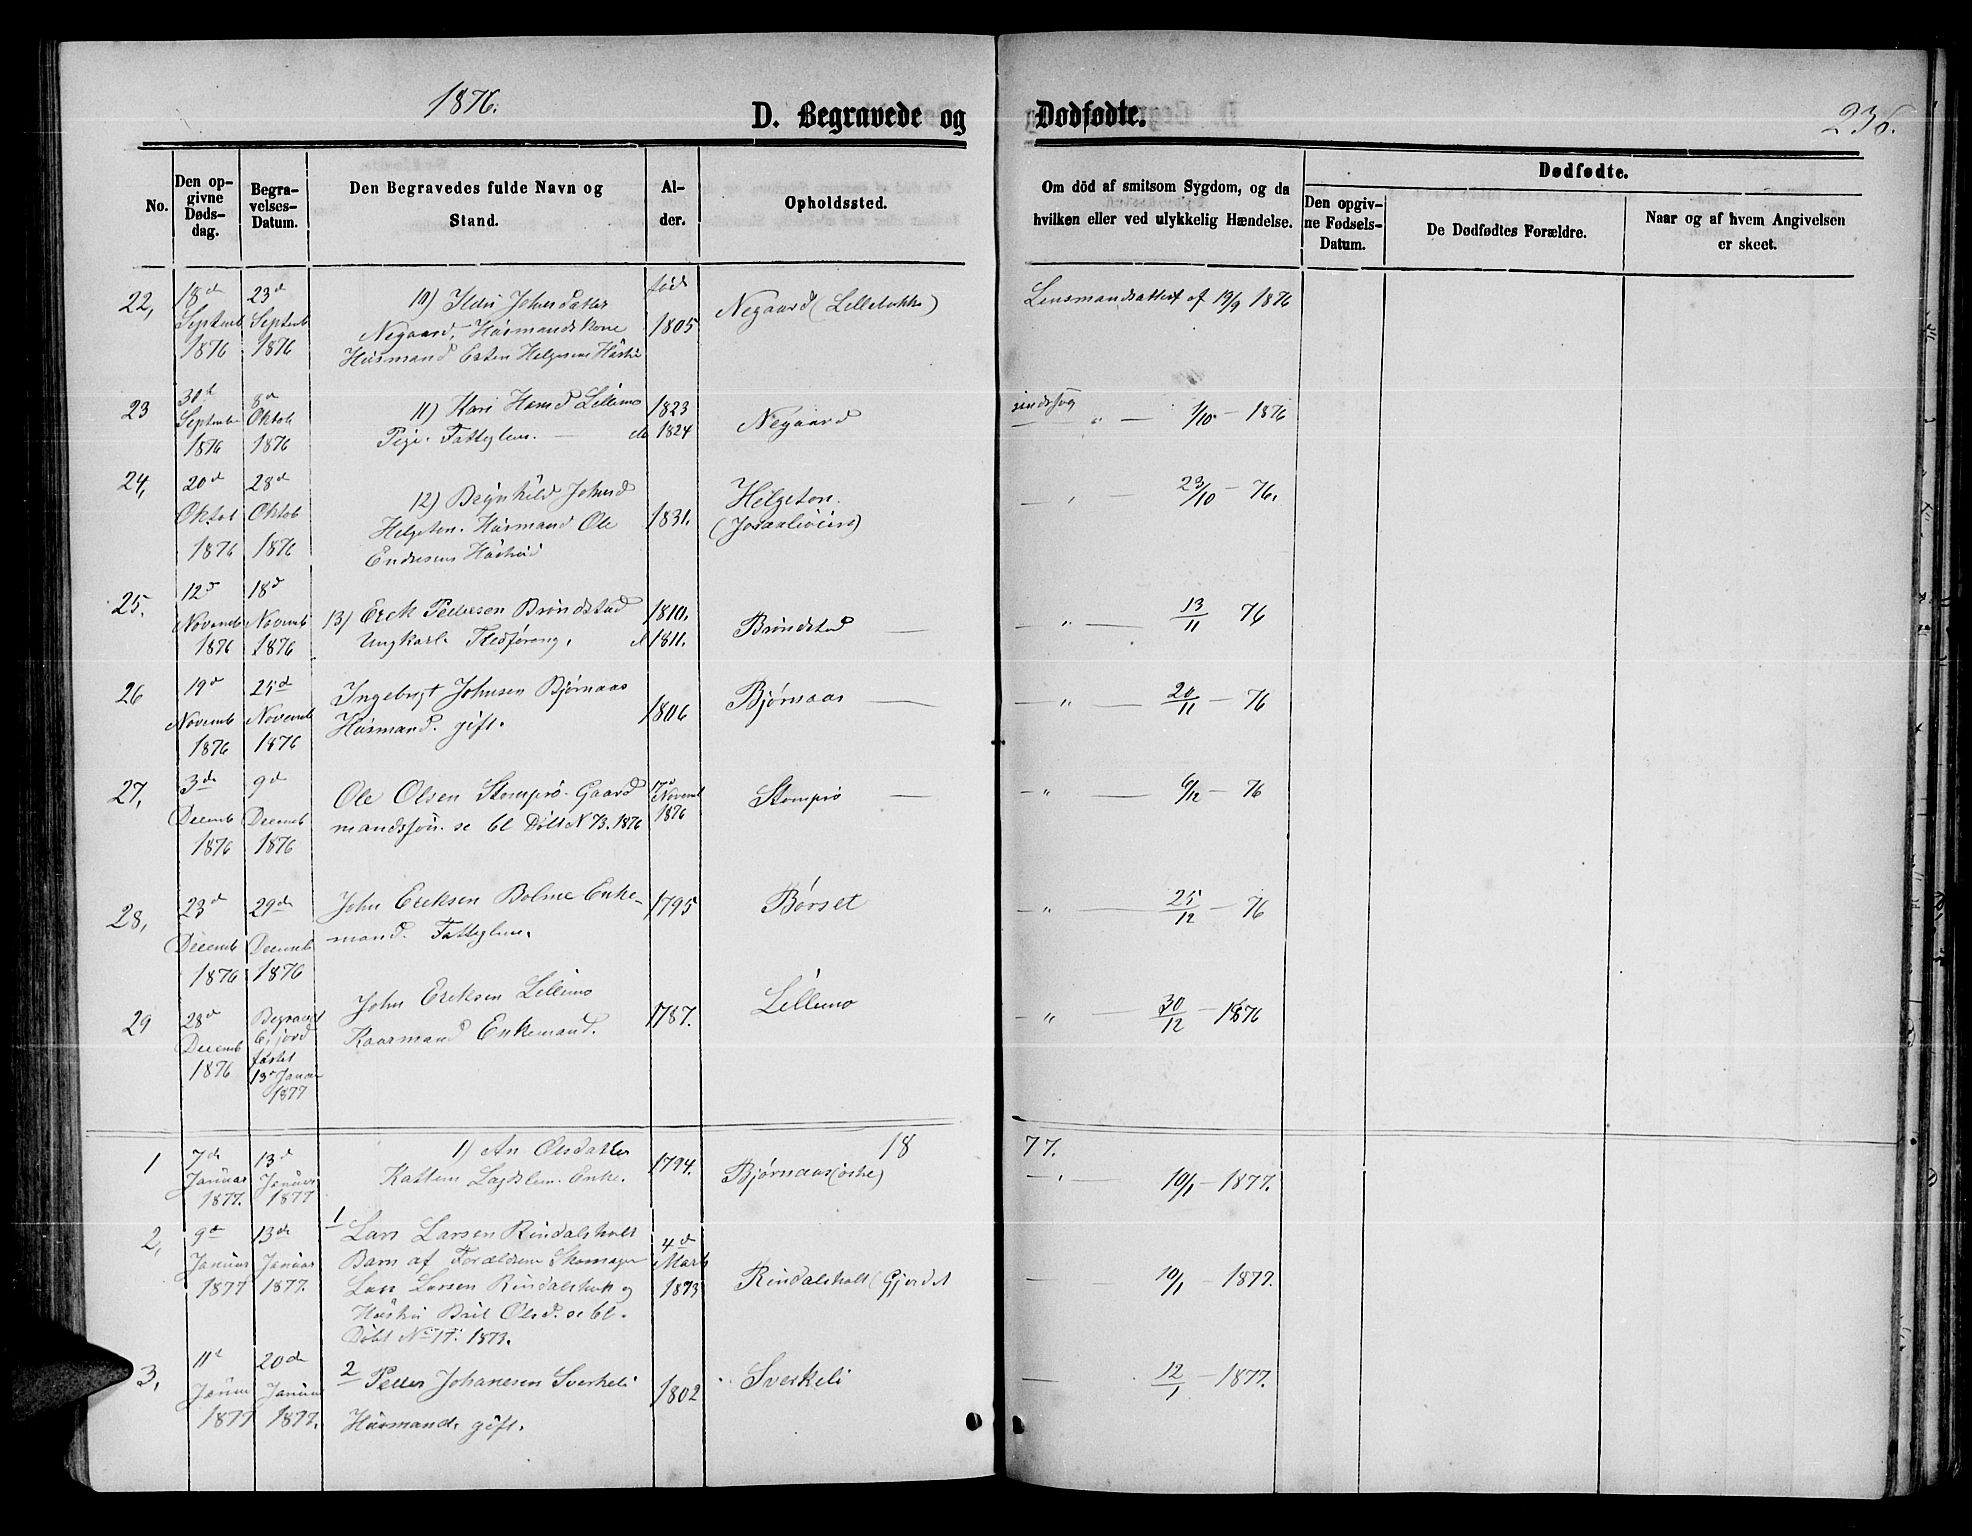 1876.
236.
D. Begravede og Dødfødte.
No.
Den opgivne Dødsdag.
Begravelses-Datum.
Den Begravedes fulde Navn og Stand.
Alder.
Opholdssted.
Om död af smitsom Sygdom, og da hvilken eller ved ulykkelig Hændelse.
Dødfødte.
Den opgivne Fødsels-Datum.
De Dødfødtes Forældre.
Naar og af hvem Angivelsen er skeet.
22, 18d Septemb 1876 23d Septemb 1876
10) Johnsdatter
Negaard, Husmandskone
Husmand Esten Helgesens Hustru
født 1805
Negaard (Lilleløkke)
Lensmandsattest af 19/9 1876
23 30d Septembr 1876 8d Oktob 1876
11) Kari Hansd Lillemo
Pige. Fattiglem. — 1823
1824
Negaard
sindssyg " — 1/10 — 1876
24, 20d Oktob 1876 28d Oktob 1876
12) Johnsd
Helgeton. Husmand Ole
Endresens Hustru
1831.
Helgeton.
— " — 23/10 — 76.
25. 12d Novemb 1876 18d Novemb 1876
13) Erik Pedersen Brøndstad
Ungkarl. Flødføring.
1810.
1811.
Brøndstad —
— " — 13/11 76
26 19d Novemb 1876 25d Novemb 1876
Ingebrigt Johnsen Bjørnaas
Husmand. gift.
1806
Bjørnaas —
— " — 20/11 — 76
27, 3de Decemb 1876 9d Decemb 1876
Ole Olsen Stomprø. Gaard
mandssøn. se bl Døbt N 73. 1876
17d Novemb 1876
Stomprø —
— " — 6/12 — 76
28, 23d Decemb 1876 29de Decemb 1876
John Eriksen Bolme Enke-
mand. Fattiglem.
1795
Børset
— " — 25/12 — 76
29 28d Decemb 1876 Begravet i jord fæstet 13d Januar 1877
John Eriksen Lillemo
Kaarmand Enkemand.
1787.
Lillemo
— " — 30/12 — 1876
18 77.
1 7de Januar 1877. 13d Januar 1877
1) An Olsdatter
Katten Lægdslem. Enke.
1794.
Bjørnaas
— " — 10/1 — 1877.
2, 9d Januar 1877 13de Januar 1877.
1 Lars Larsen Rindalsholt
Barn af Forældrene Skomager
Lars Larsen Rindalsholt og
Hustru Olsd. se bl.
Døbt No 17. 1873.
4d Marts 1873
Rindalsholt (Gjerdet
— — 10/1 — 1877.
3, 11d Januar 1877 20de Januar 1877.
2 Peder Johanesen Sverkeli
Husmand. gift.
1802
Sverkeli
— 12/1 — 1877.